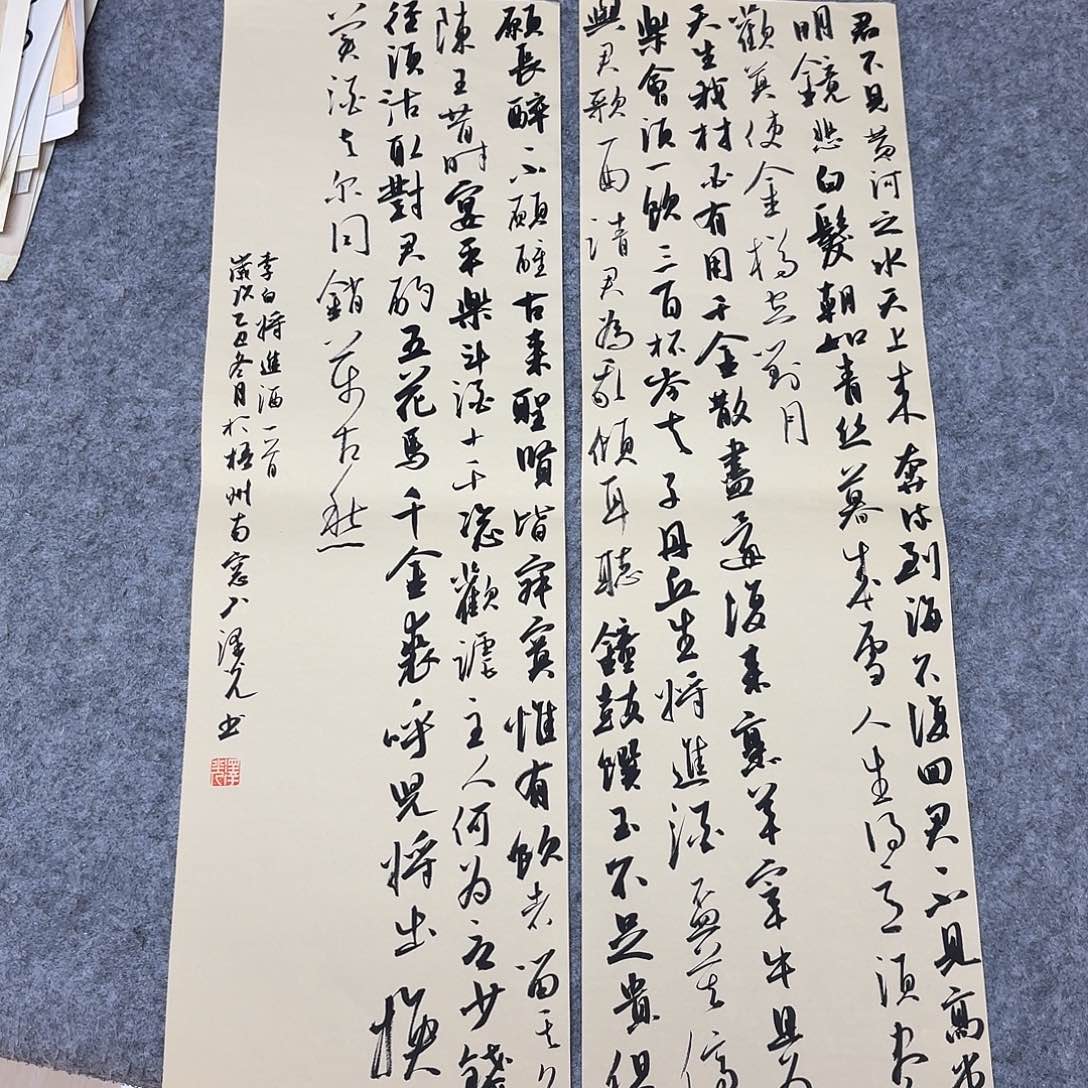 君不見黃河之水天上來奔流到海不復回君不見高堂
明鏡悲白髮朝如青絲暮成雪人生得意須盡
歡莫使金樽空對月
天生我材必有用千金散盡還復來烹羊宰牛且為
樂會須一飲三百杯岑夫子丹丘生將進酒杯莫停
與君歌一曲請君為我傾耳聽鐘鼓饌玉不足貴但
願長醉不願醒古來聖賢皆寂寞惟有飲者留其
陳王昔時宴平樂斗酒十千恣歡謔主人何為言少錢
徑須沽取對君酌五花馬千金裘呼兒將出換
美酒與爾同銷萬古愁
李白將進酒一首
歲次乙丑冬月於梧州南窗下澤光书
澤光